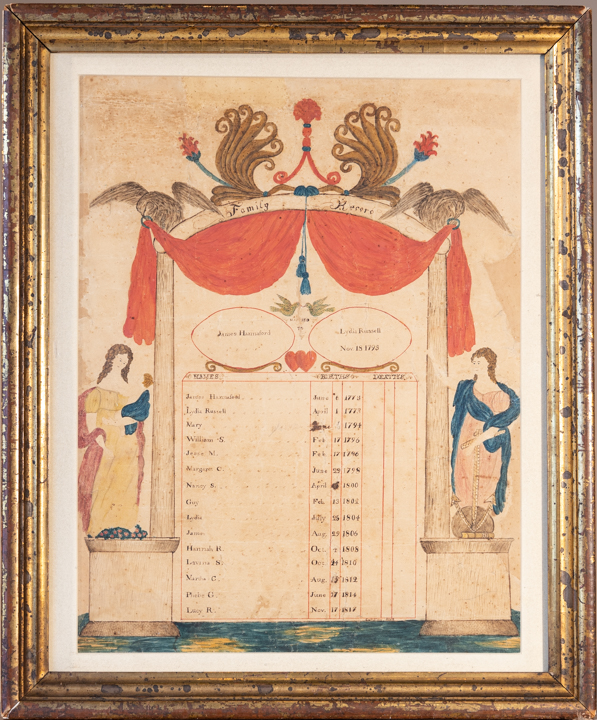 Family Record
James Hannaford
Lydia Russell
Nov 18 1793
NAMES. BIRTHS. DEATHS.
James Hannaford. June 1773
Lydia Russell April 1 1773
Mary 1794
William S. Feb 17 1796
M. Feb 17 1796
Margaret C. June 29 1798
Nancy S. April 1800
Guy Feb 13 1802
Lydia July 25 1804
James Aug. 29 1806
Hannah R. Oct. 1808
Lavina S. 1810
C. Aug. 1812
Phebe G. June 27 1814
Lucy R. Nov. 17 1817